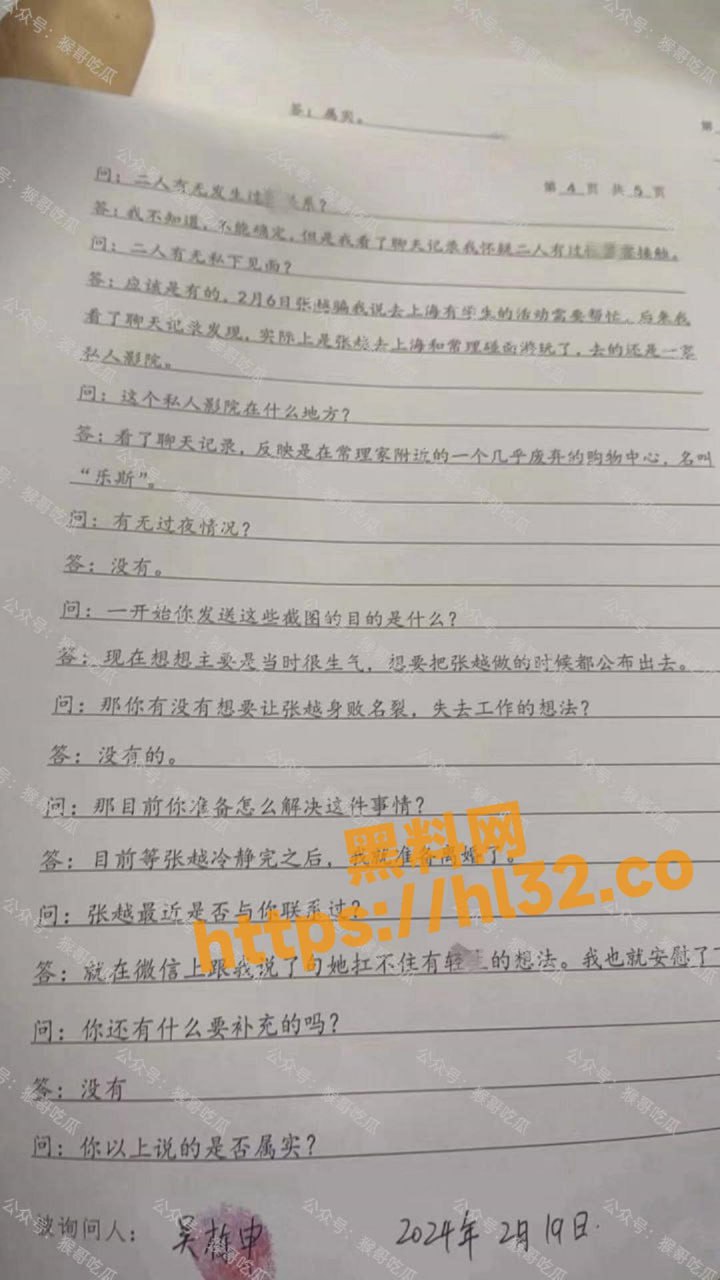 答：属实。
第 4 页 共 5 页
问：二人有无发生过 关系？
答：我不知道，不能确定，但是我看了聊天记录我怀疑二人有过 接触。
问：二人有无私下见面？
答：应该是有的。2月6日张越骗我说去上海有学生的活动需要帮忙。后来我
看了聊天记录发现，实际上是张越去上海和常理碰面游玩了，去的还是一家
私人影院。
问：这个私人影院在什么地方？
答：看了聊天记录，反映是在常理家附近的一个几乎废弃的购物中心，名叫
“乐斯”。
问：有无过夜情况？
答：没有。
问：一开始你发送这些截图的目的是什么？
答：现在想想主要是当时很生气，想要把张越做的时候都公布出去。
问：那你有没有想要让张越身败名裂，失去工作的想法？
答：没有的。
问：那目前你准备怎么解决这件事情？
答：目前等张越冷静完之后，我就准备离婚了。
黑料网
https://hl32.co
问：张越最近是否与你联系过？
答：就在微信上跟我说了句她扛不住有轻 的想法。我也就安慰了
问：你还有什么要补充的吗？
答：没有
问：你以上说的是否属实？
被询问人： 吴 申 2024年2月19日.
公众号：猴哥吃瓜